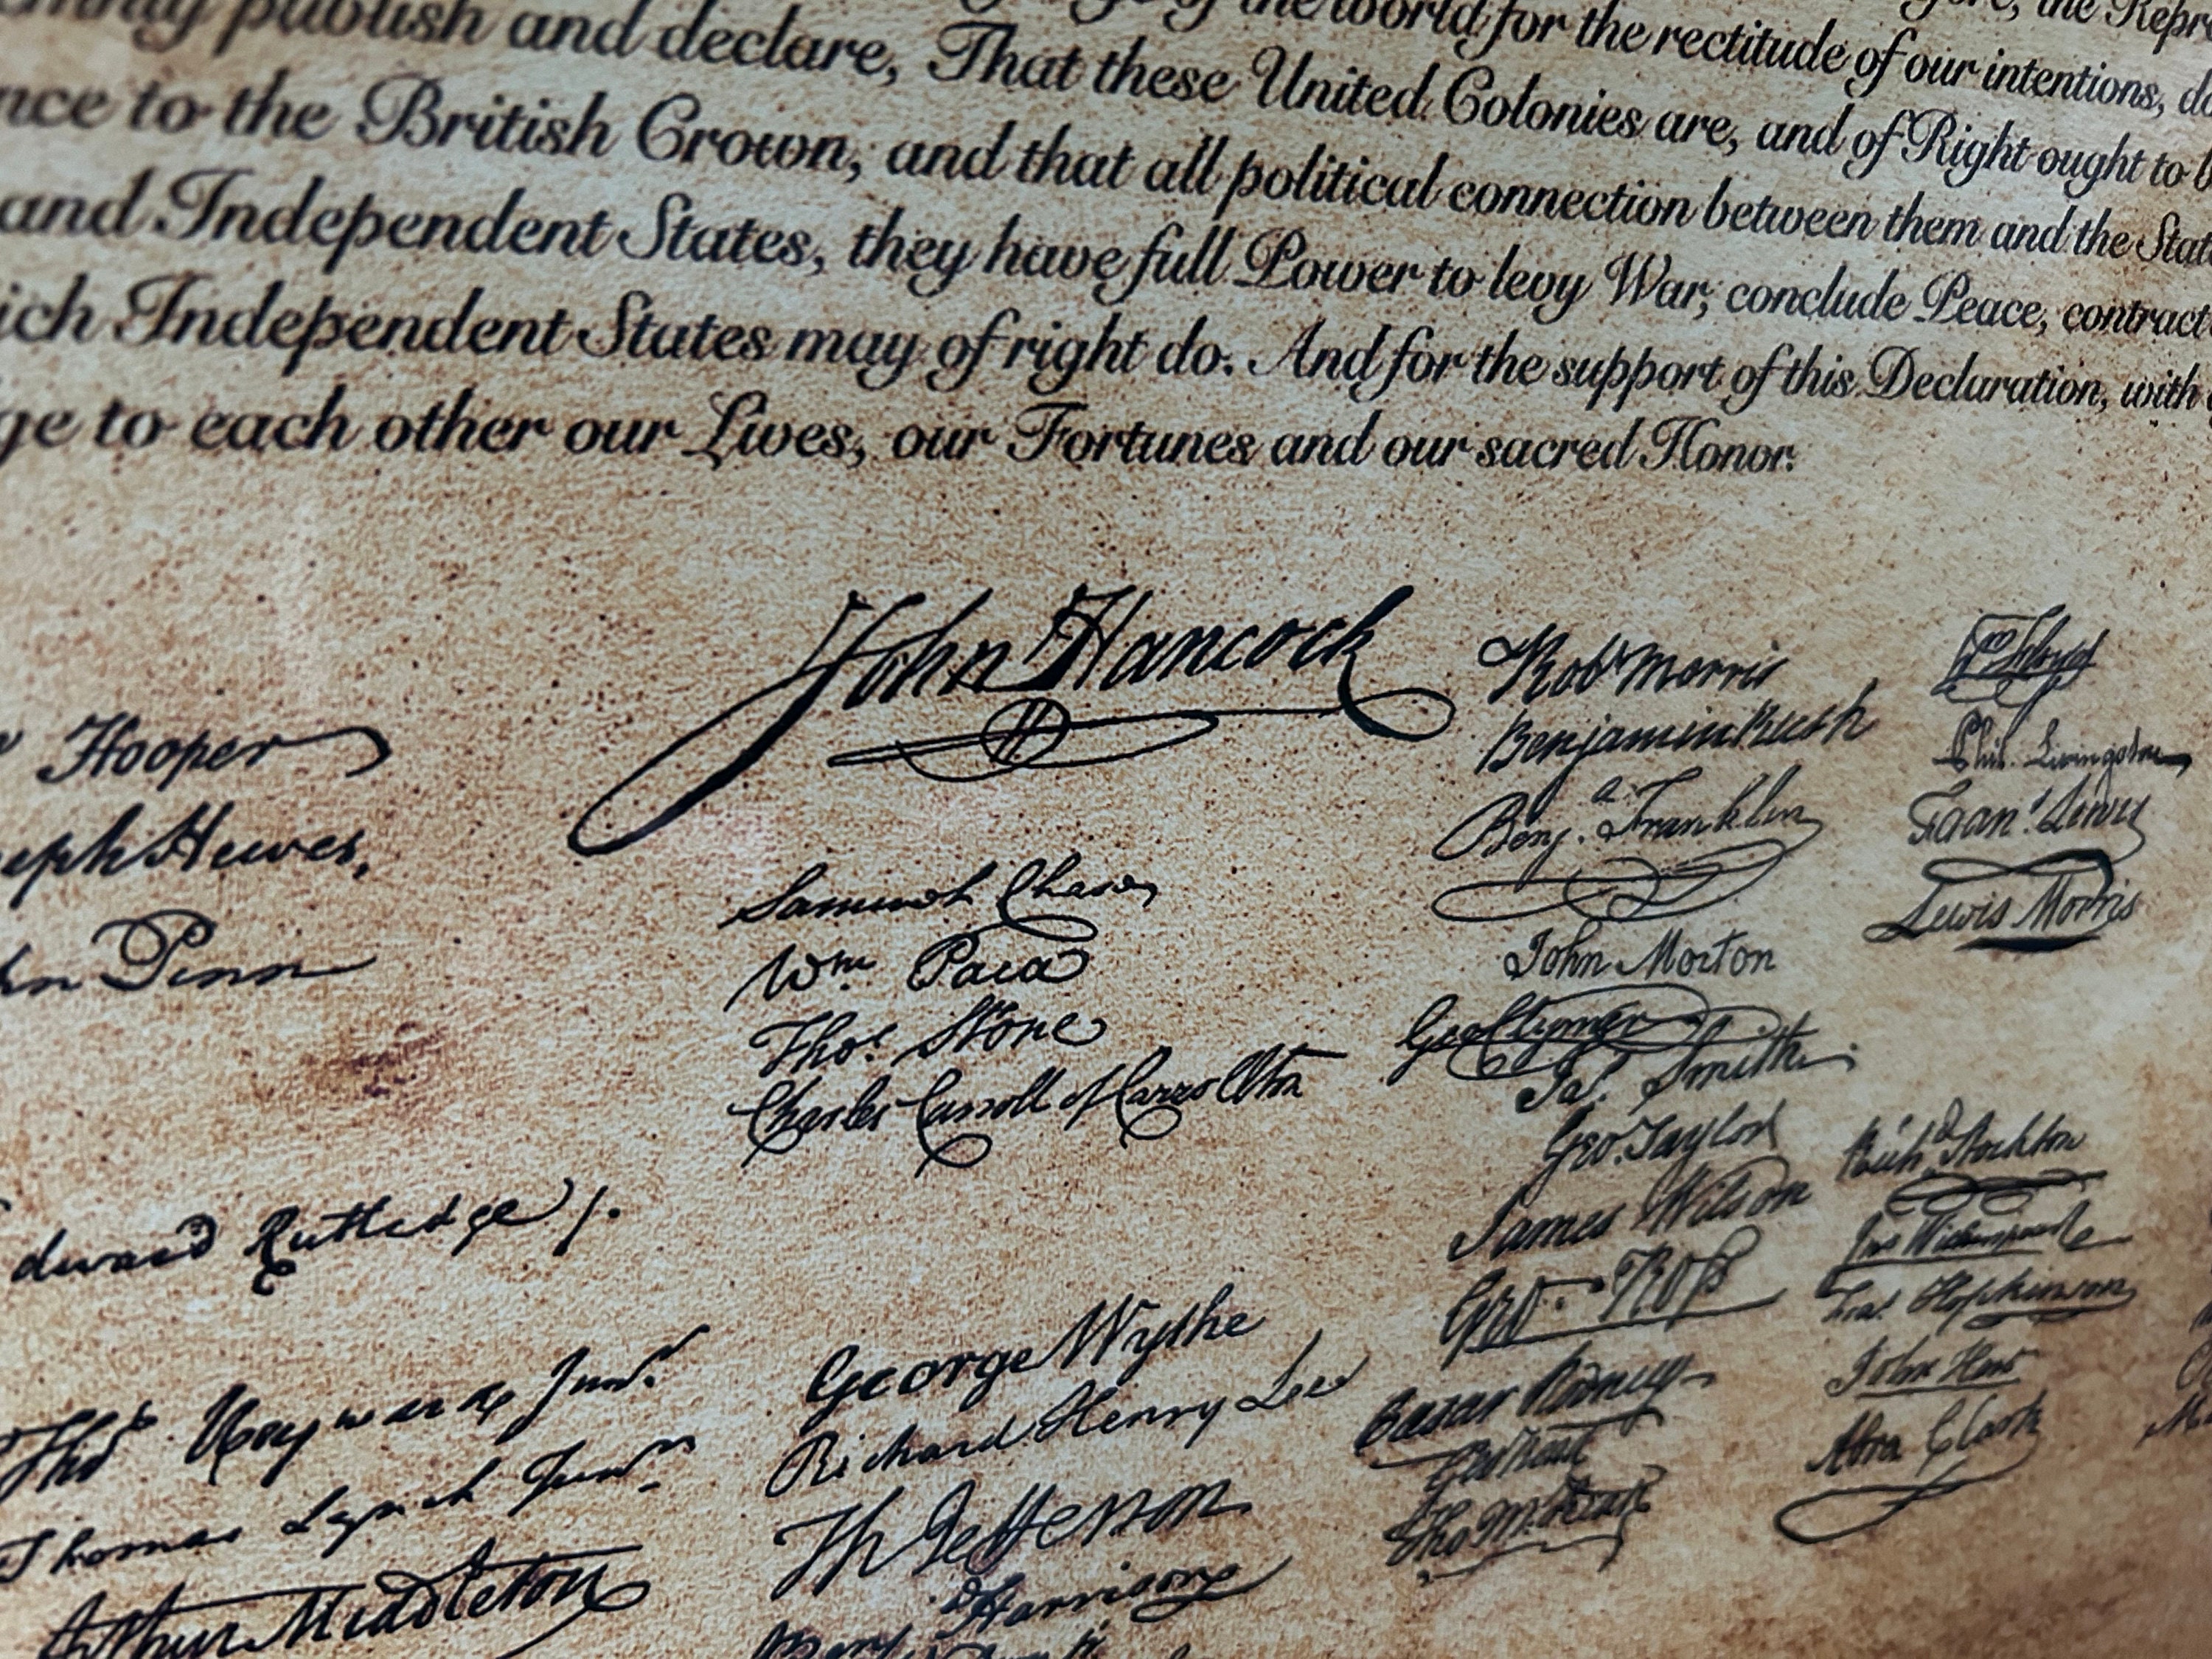 publish and declare, That these United Colonies are, and of Right ought to
of the world for the rectitude of our intentions,
to the British Crown, and that all political connection between them and the
and Independent States, they have full Power to levy War, conclude Peace, contract
Independent States may of right do. And for the support of this Declaration, with
to each other our Lives, our Fortunes and our sacred Honor.
John Hancock
Hooper
Hewes,
Penn
Samuel Chase
Wm Paca
Thos. Stone
Charles Carroll of Carrollton
Robt Morris
Benjamin Rush
Benja. Franklin
John Morton
Geo Clymer
Jas. Smith
Geo. Taylor
James Wilson
Geo. Ross
Caesar Rodney
Geo Read
Tho M:Kean
Wm Floyd
Phil. Livingston
Frans. Lewis
Lewis Morris
Richd Stockton
Jno Witherspoon
Fras. Hopkinson
John Hart
Abra Clark
Rutledge /.
Thos Heyward Junr.
Thomas Lynch Junr.
Arthur Middleton
George Wythe
Richard Henry Lee
Th Jefferson
Harrison